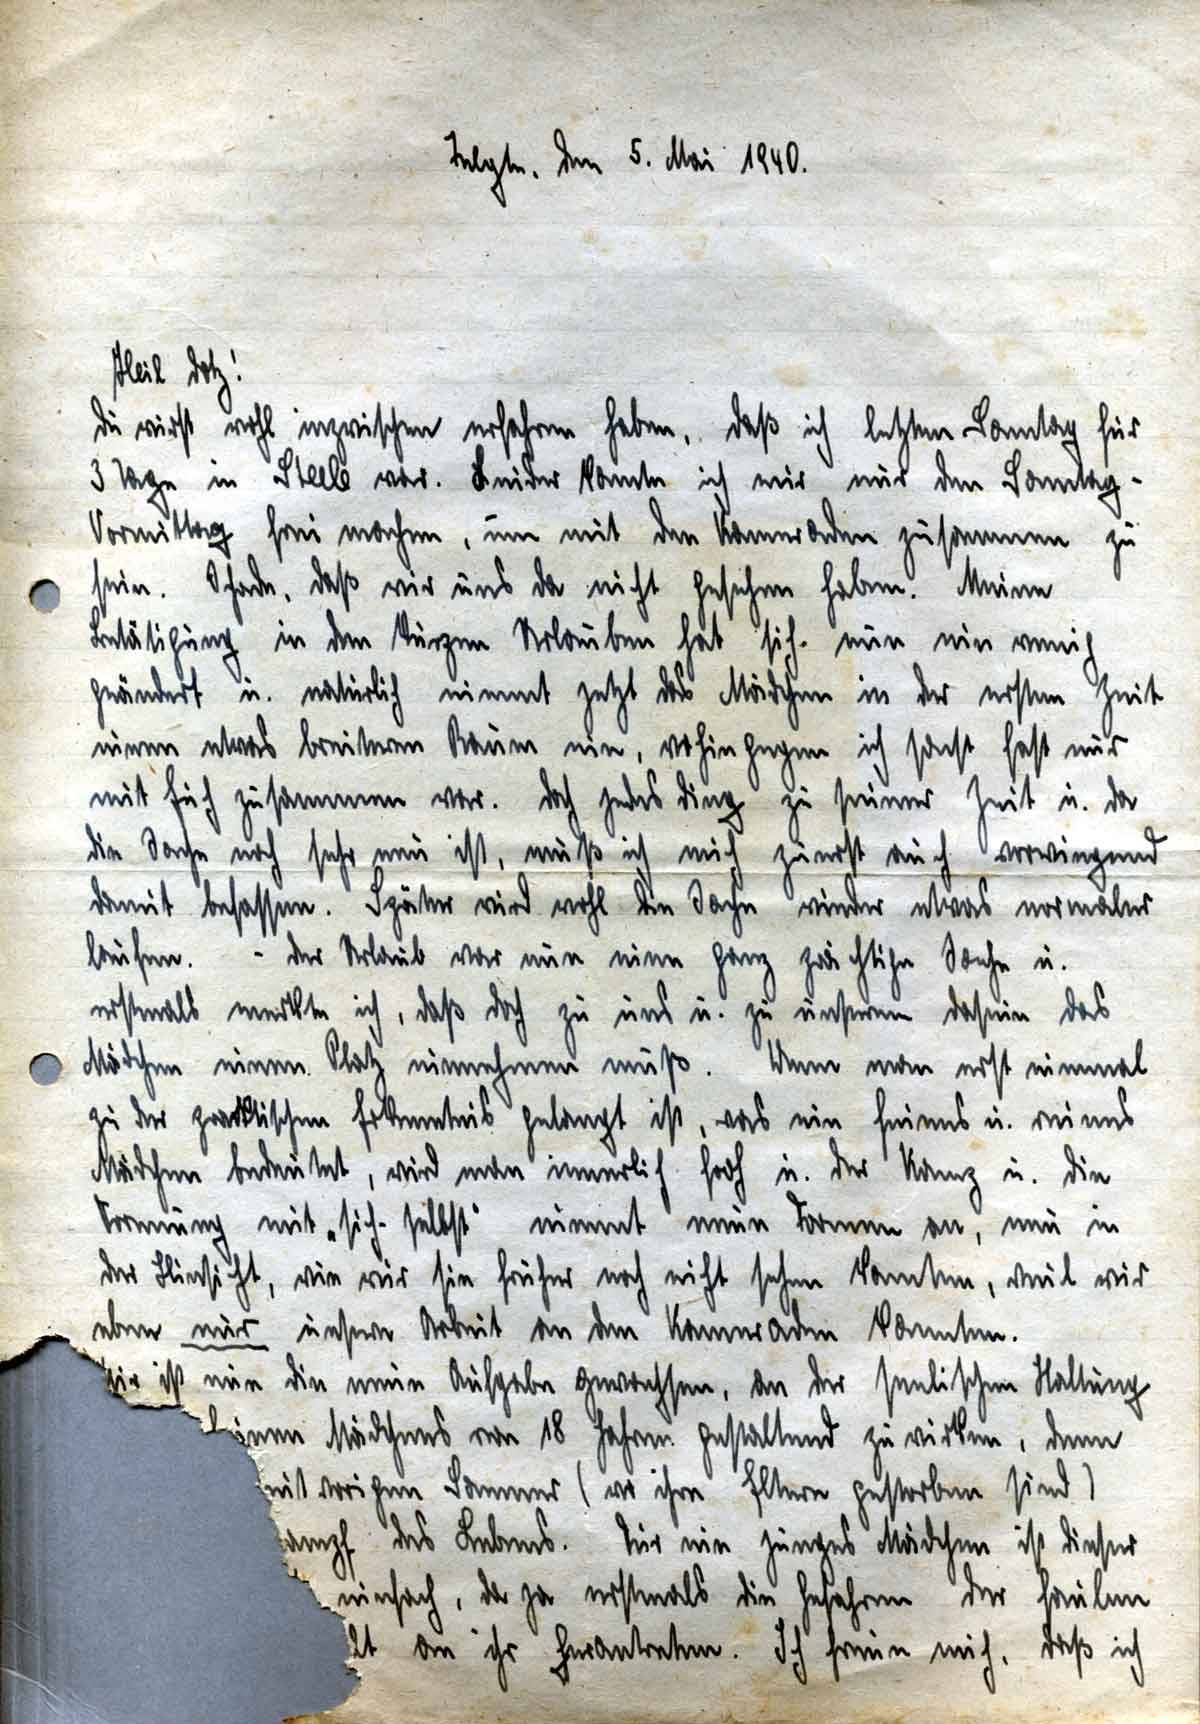 Telgte, den 5. Mai 1940.
Heil Dotz!
Du wirst wohl inzwischen erfahren haben, daß ich letzten Sonntag für
3 Tage in Steele war. Leider konnte ich mir nur den Sonntag-
Vormittag frei machen, um mit den Kameraden zusammen zu
sein. Schade, daß wir uns da nicht gesehen haben. Meine
Betätigung in den kurzen Urlauben hat sich nun ein wenig
geändert u. natürlich nimmt jetzt das Mädchen in der ersten Zeit
einen etwas breiteren Raum ein, wohingegen ich sonst fast nur
mit Euch zusammen war. Doch jedes Ding zu seiner Zeit u. da
die Sache noch sehr neu ist, muß ich mich zuerst auch vorwiegend
damit befassen. Später wird wohl die Sache wieder etwas normaler
laufen. - Der Urlaub war nun eine ganz prächtige Sache u.
erstmals merkte ich, daß doch zu uns u. zu unserem Dasein das
Mädchen einen Platz einnehmen muß. Wenn man erst einmal
zu der praktischen Erkenntnis gelangt ist, was ein feines u. reines
Mädchen bedeutet, wird man innerlich froh u. der Kampf u. die
Formung mit „sich selbst" nimmt neue Formen an, neu in
der Hinsicht, wie wir sie früher noch nicht sehen konnten, weil wir
eben nur unsere Arbeit an den Kameraden kannten.
Mir ist nun die neue Aufgabe gewachsen, an der seelischen Haltung
eines Mädchens von 18 Jahren gestaltend zu wirken, denn
seit vorigen Sommer (wo ihre Eltern gestorben sind)
ampf des Lebens. Für ein junges Mädchen ist dieser
einfach, da ja erstmals die Gefahren der faulen
lt an ihr herantreten. Ich freue mich, daß ich